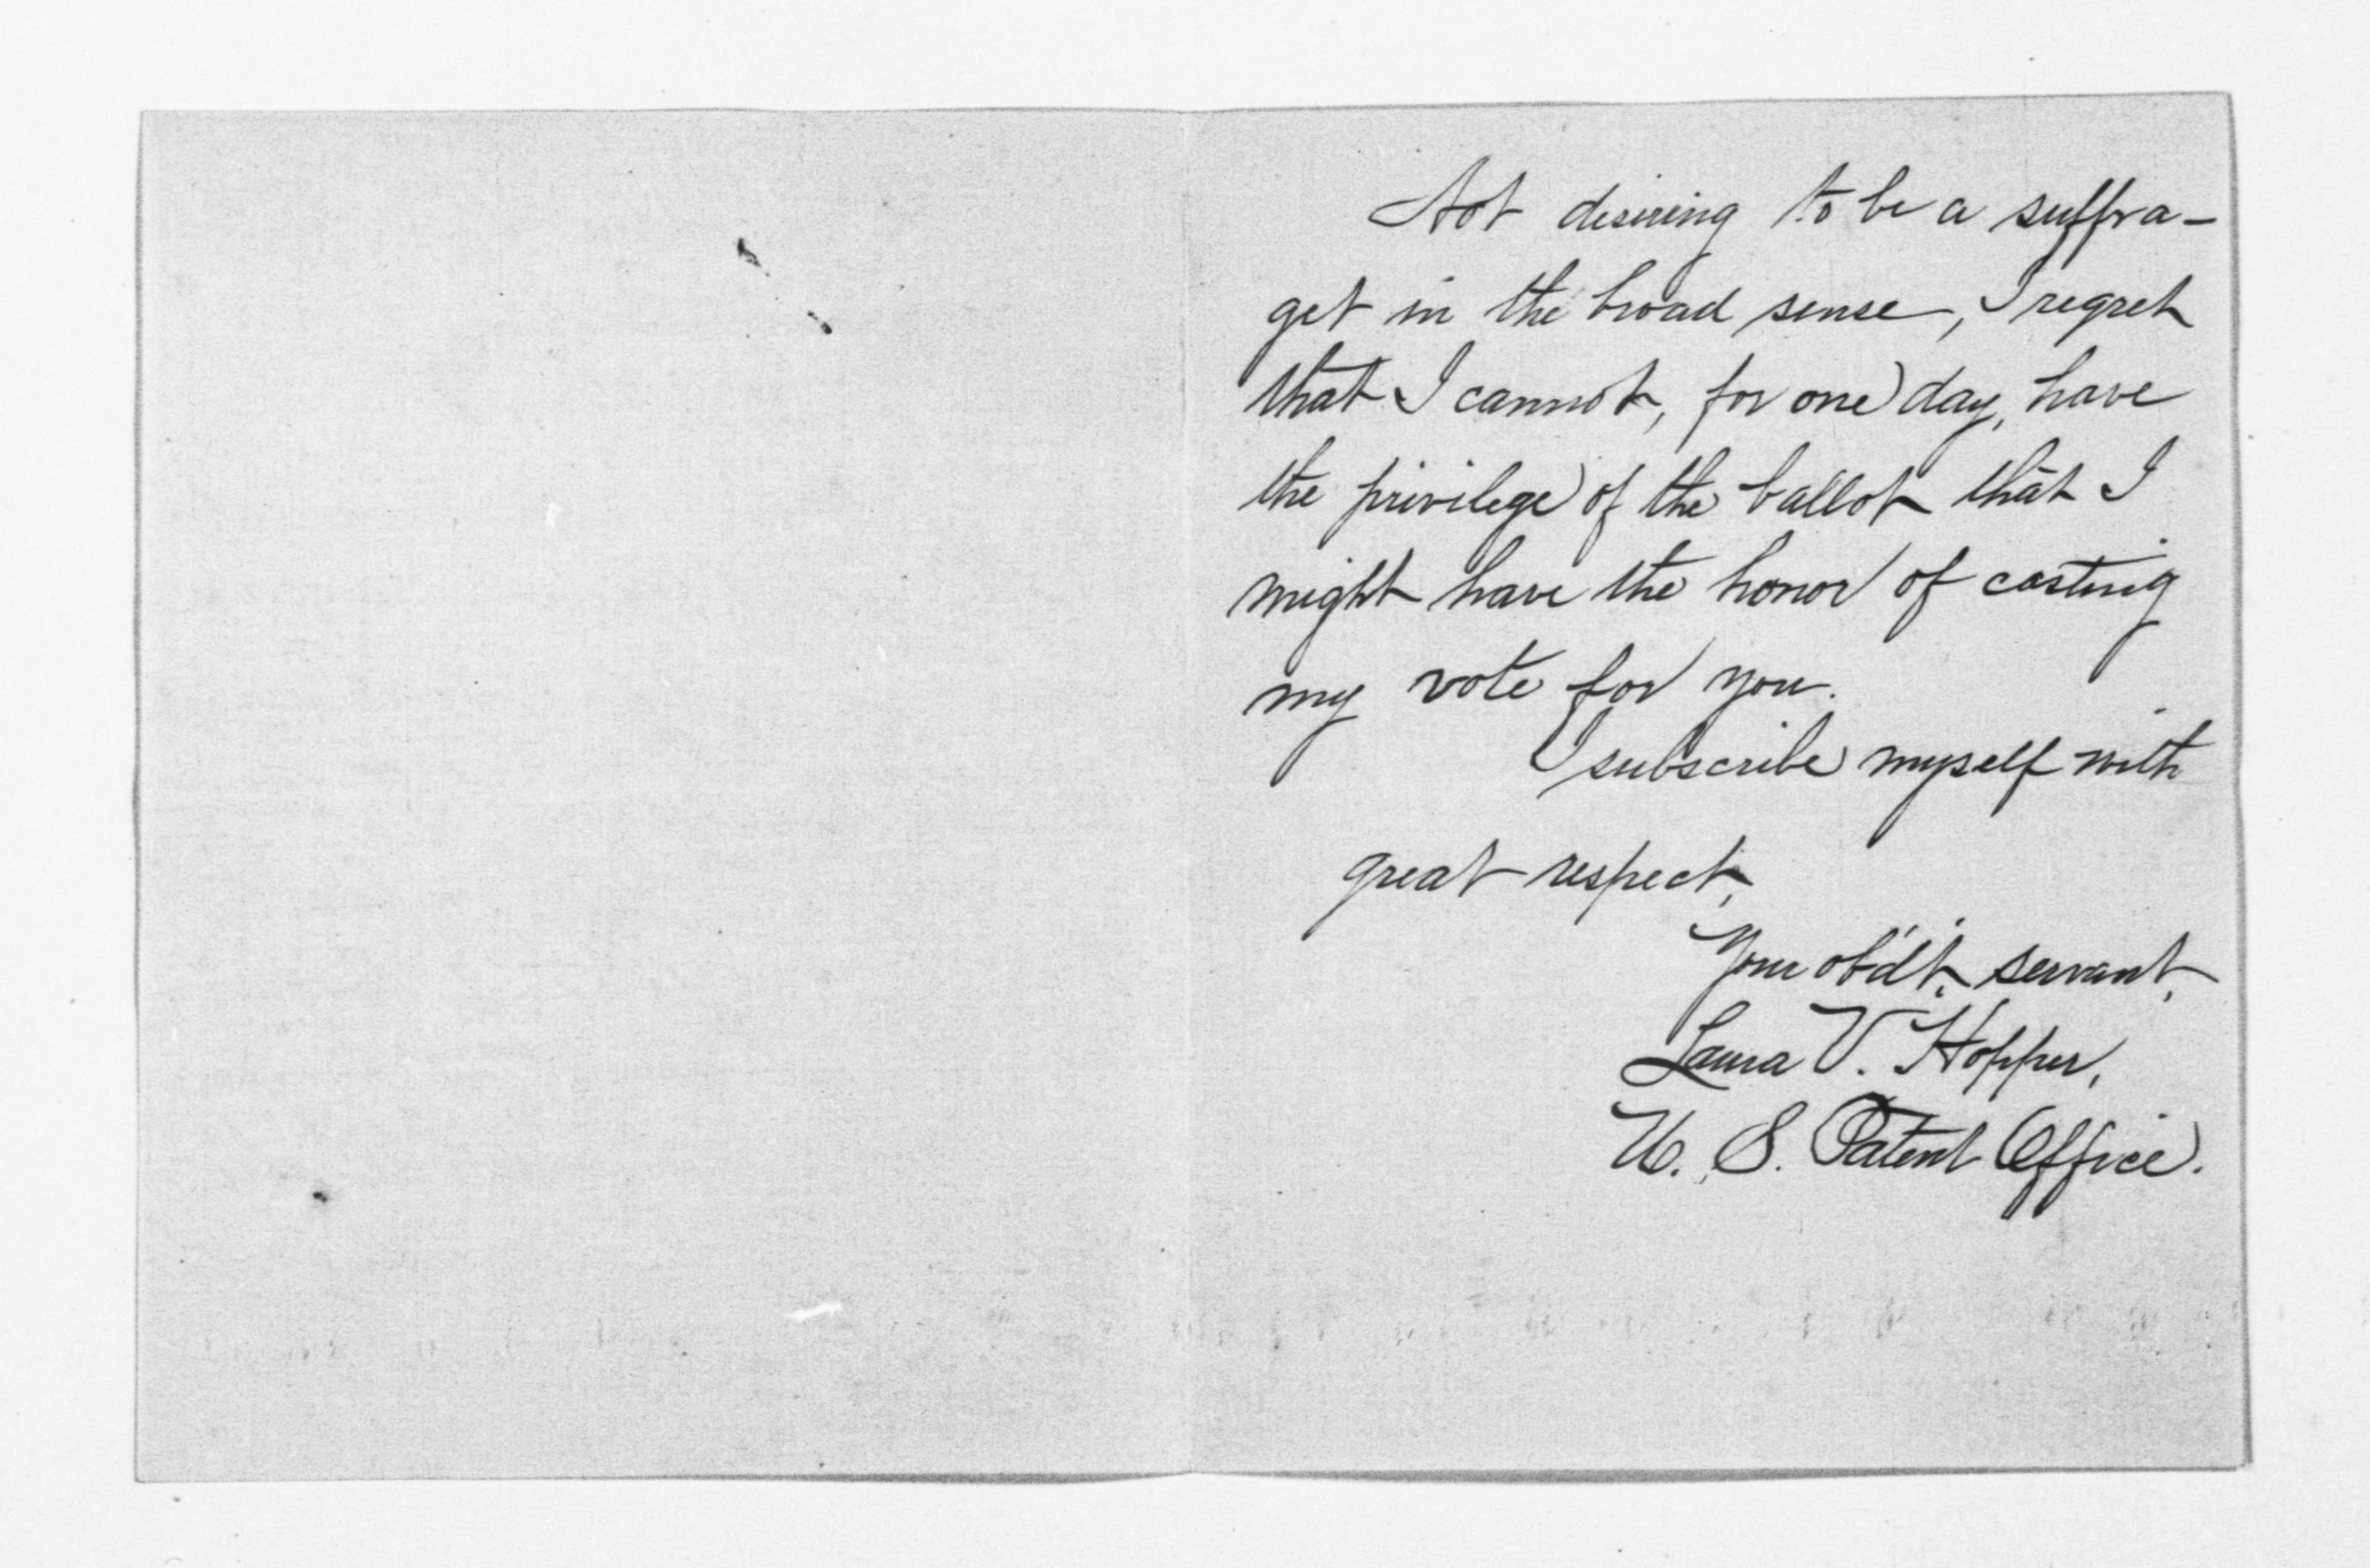 Not desiring to be a suffra-
get in the broad sense, I regret
that I cannot, for one day, have
the privilege of the ballot that I
might have the honor of casting
my vote for you.
I subscribe myself with
great respect,
Your ob'd't. servant,
Laura V. Hopper,
U. S. Patent Office.